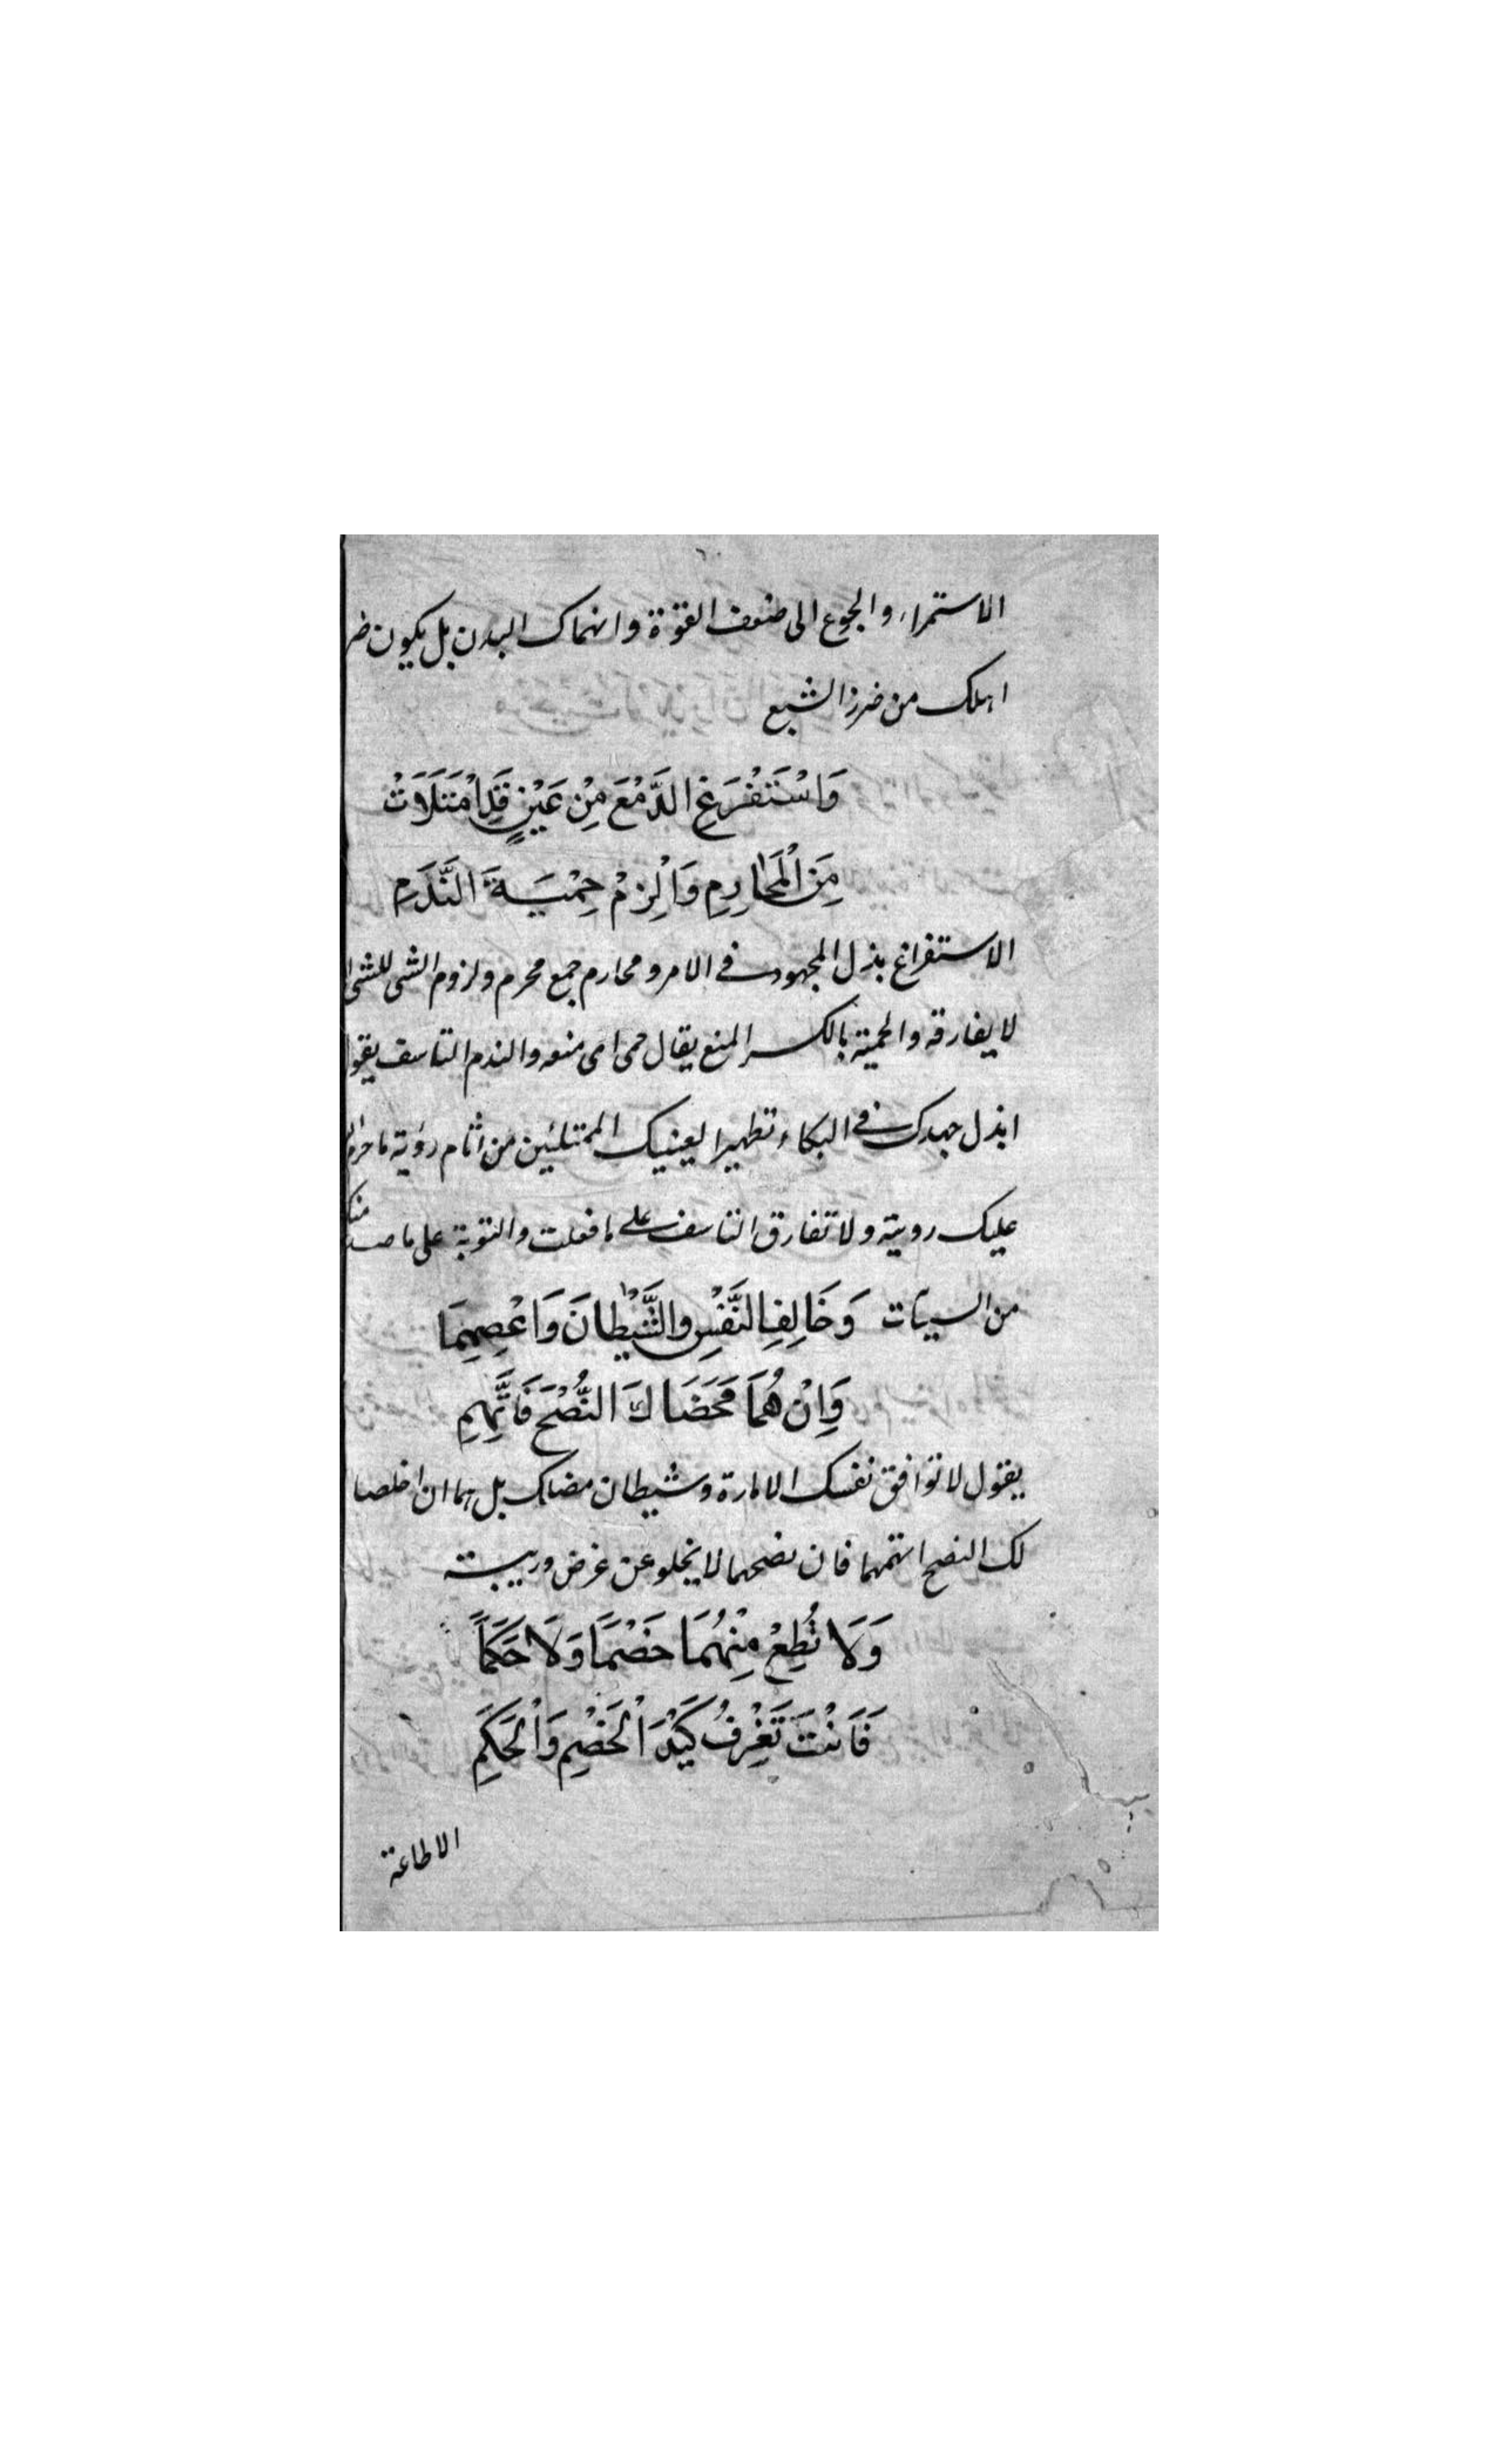 الاستمراء والجوع الى ضعف القوة وانهماك البدن بل يكون ضر
اهلك من ضرر الشبع
وَاسْتَفْرِغِ الدَّمْعَ مِنْ عَيْنٍ قَدِ امْتَلَاَتْ
مِنَ الْمَحَارِمِ وَالْزِمْ حِمْيَةَ النَّدَمِ
الاستفراغ بذل المجهود في الامر ومحارم جمع محرم ولزوم الشى للشى ا
لا يفارقه والحمية بالكسر المنع يقال حمى اى منعه والندم التاسف يقو
ابذل جهدك في البكاء تطهيرا لعينيك الممتلئين من اثام رؤية ما حرم
عليك رويته ولا تفارق التاسف على ما فعلت والتوبة على ما صد منك
من السيئات وَخَالِفِ النَّفْسَ وَالشَّيْطَانَ وَاعْصِهِمَا
وَاِنْ هُمَا مَحَضَاكَ النُّصْحَ فَاتَّهِمِ
يقول لا توافق نفسك الامارة وشيطان مضلك بل هما ان اخلصا
لك النصح اتهمهما فان نصحهما لا يخلو عن غرض وريبة
وَلَا تُطِعْ مِنْهُمَا خَصْمًا وَلَا حَكَمًا
فَاَنْتَ تَعْرِفُ كَيْدَ الْخَصْمِ وَالْحَكَمِ
الاطاعة